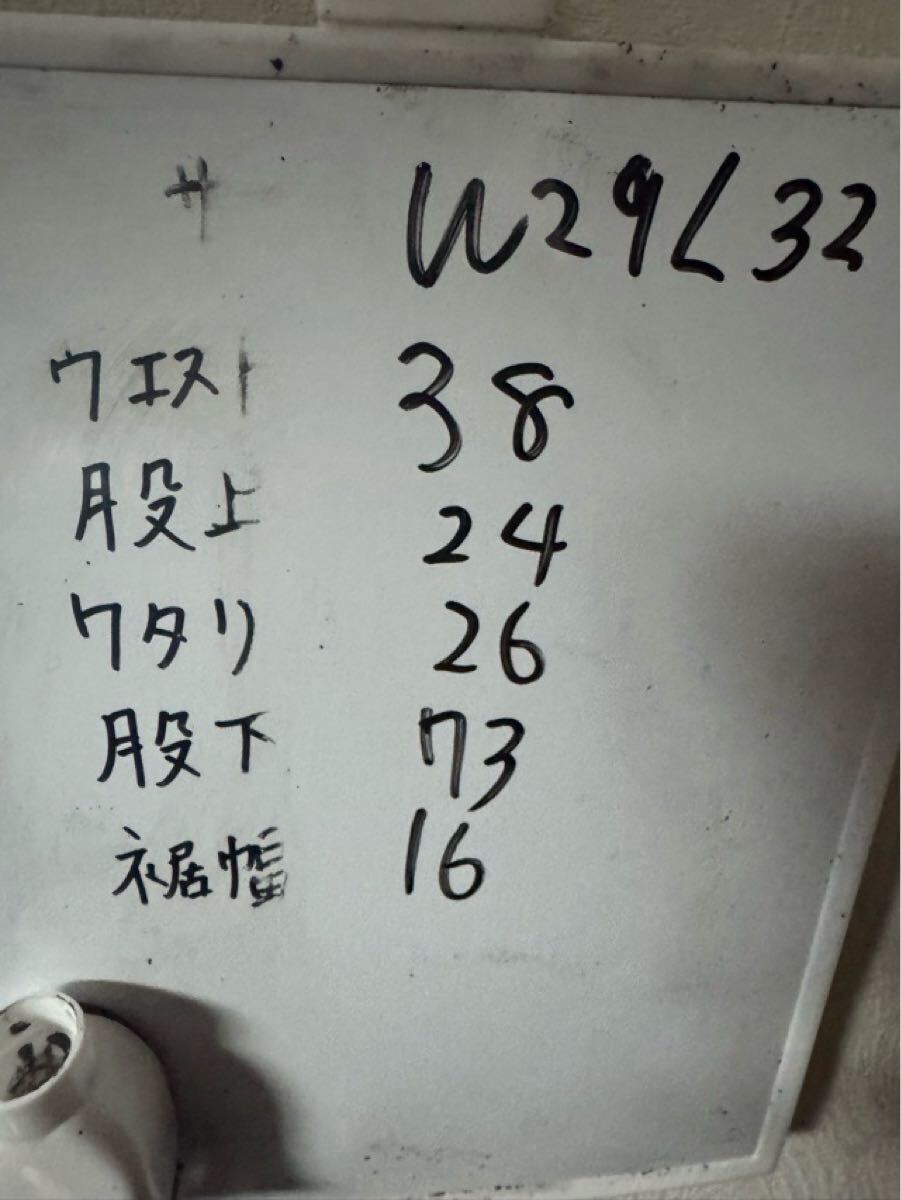 サ W29L32
ウエスト 38
股上 24
ワタリ 26
股下 73
裾幅 16